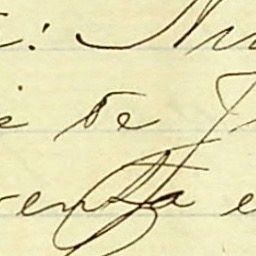 : Nu
e de J
renta e